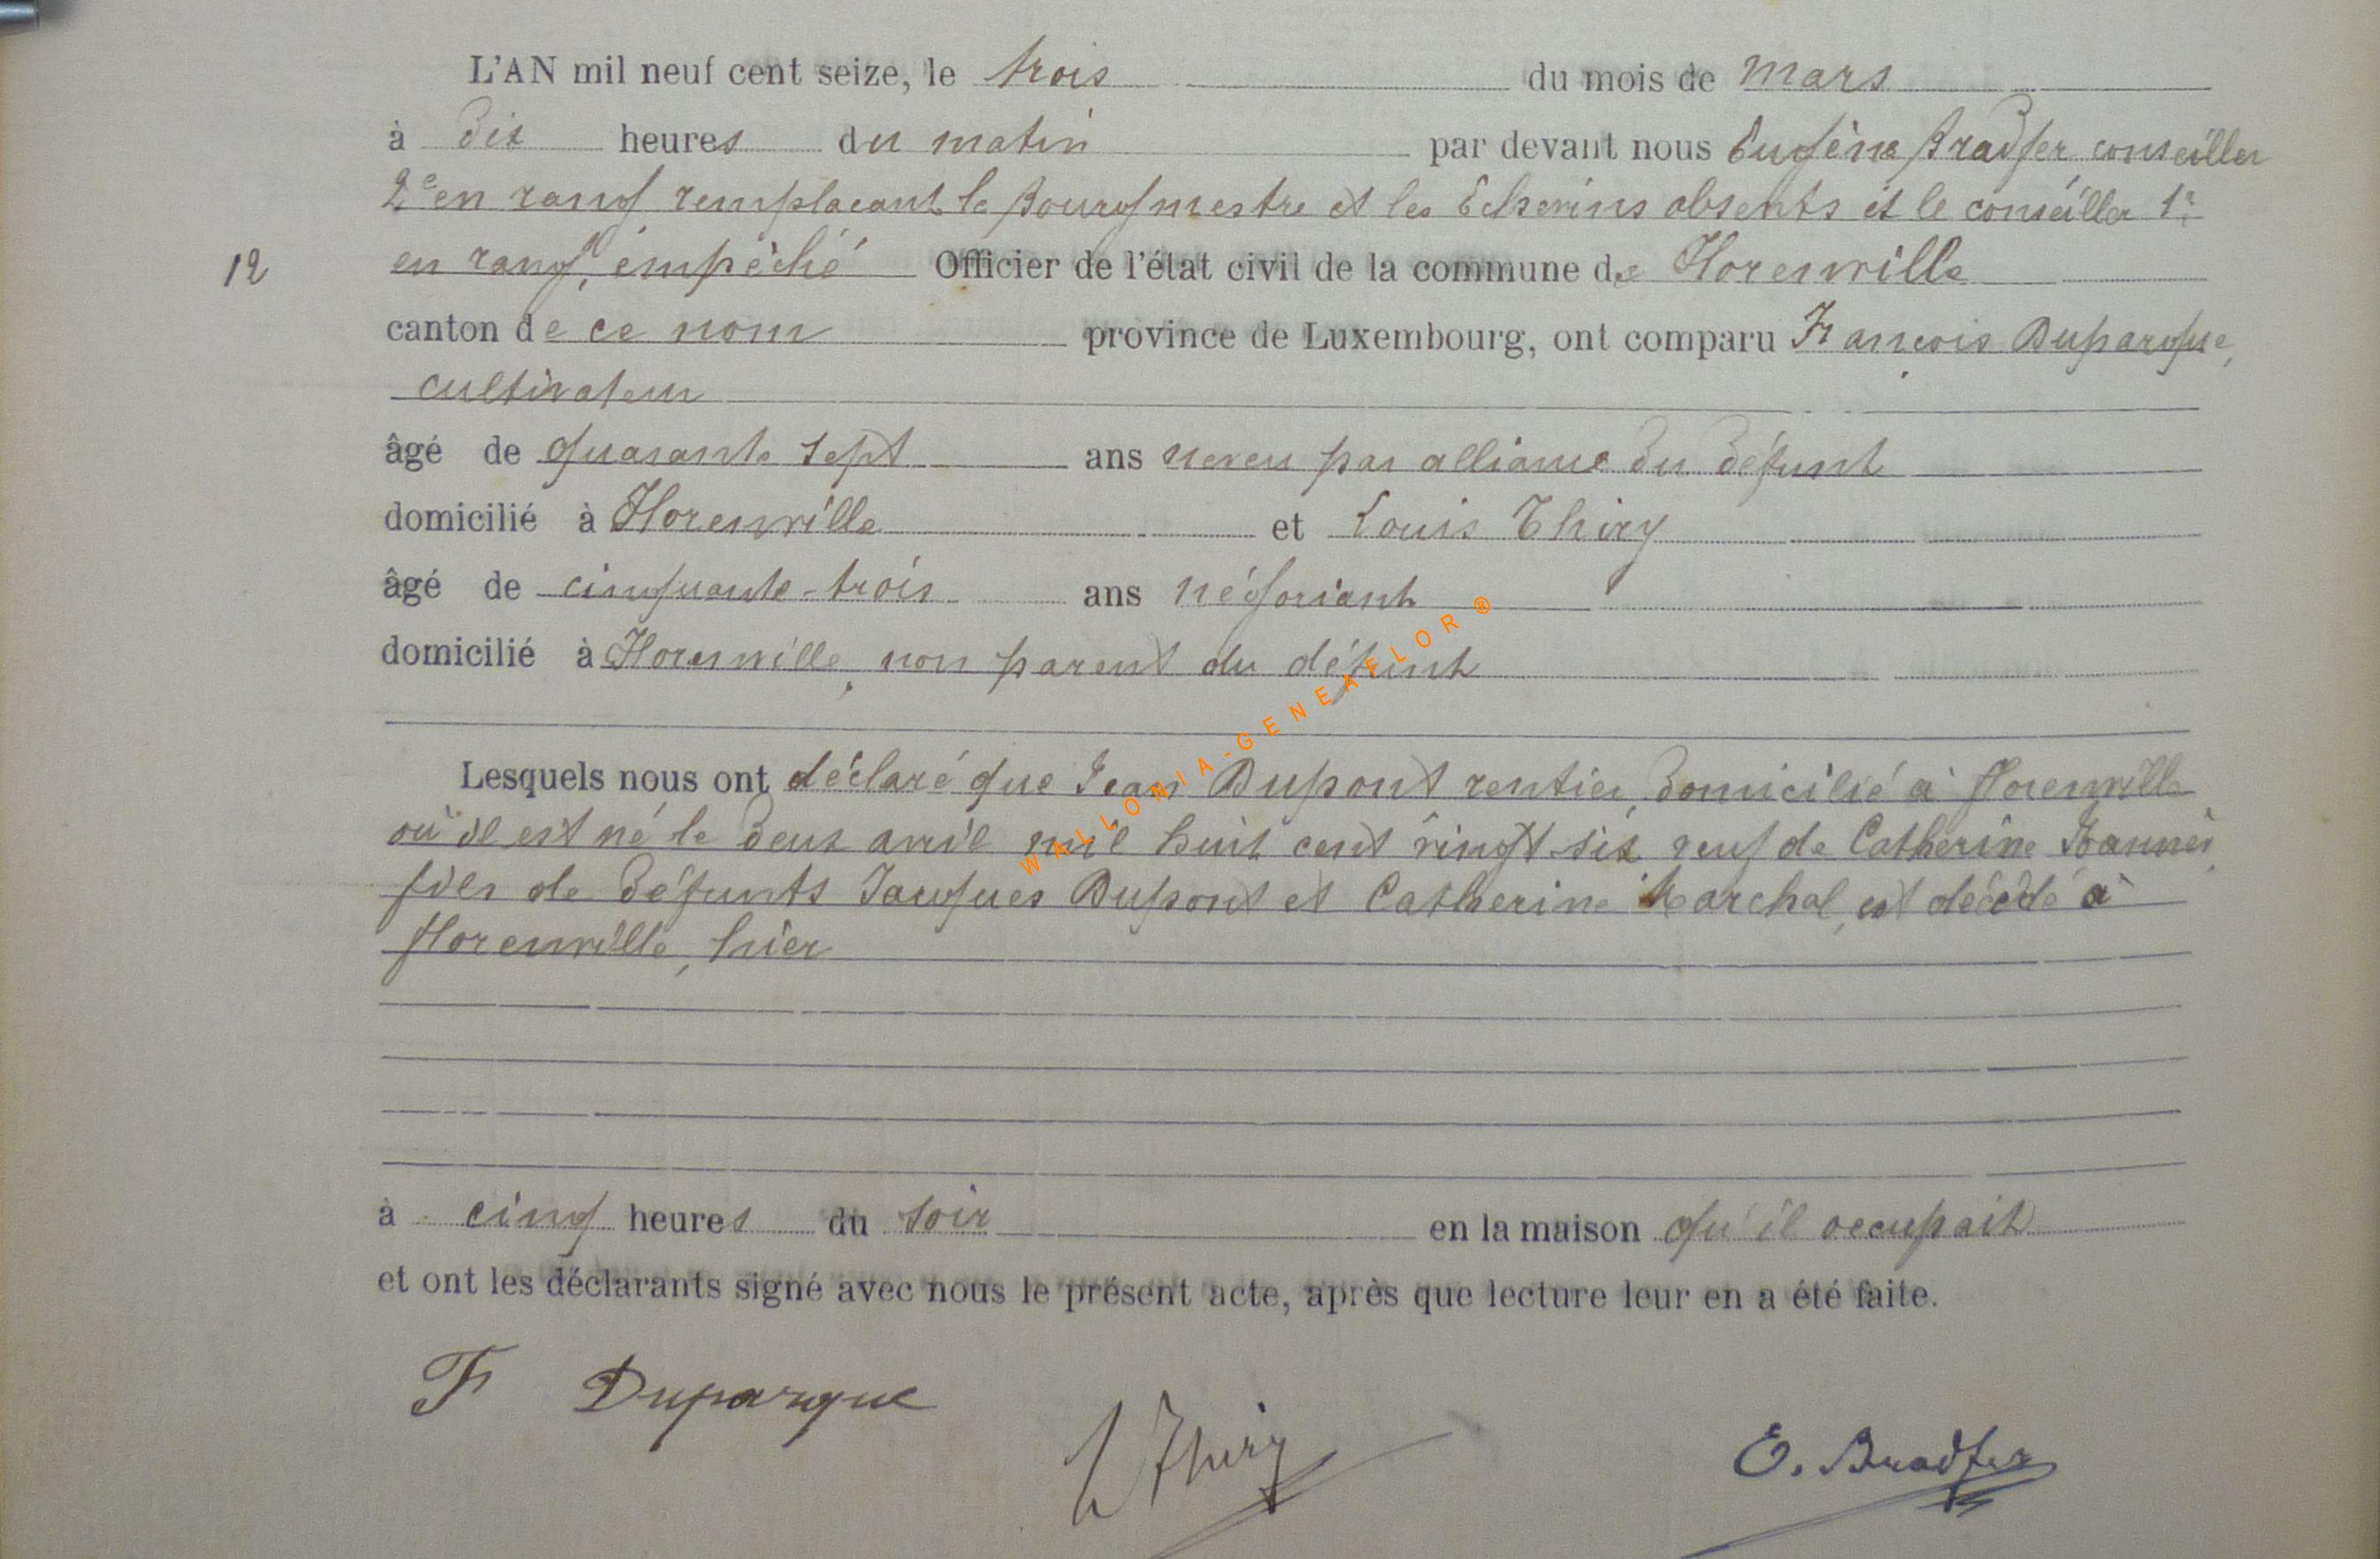 L'AN mil neuf cent seize, le trois du mois de mars
à dix heures du matin par devant nous Eugène Bradfer, conseiller
2e en rang remplaçant le Bourgmestre et les Echevins absents et le conseiller 1r
12 en rang, empêché Officier de l'état civil de la commune de Florenville
canton de ce nom province de Luxembourg, ont comparu François Duparque,
cultivateur
âgé de quarante sept ans neveu par alliance du défunt
domicilié à Florenville et Louis Thiry
âgé de cinquante-trois ans négociant
domicilié à Florenville, non parent du défunt
Lesquels nous ont déclaré que Jean Dupont rentier, domicilié à Florenville
où il est né le deux avril mil huit cent vingt-six veuf de Catherine
fils de défunts Jacques Dupont et Catherine Marchal, est décédé à
Florenville, hier
à cinq heures du soir en la maison qu'il occupait
et ont les déclarants signé avec nous le présent acte, après que lecture leur en a été faite.
F Duparque
L Thiry
E. Bradfer
WALLONIA-GENEAFLOR ®